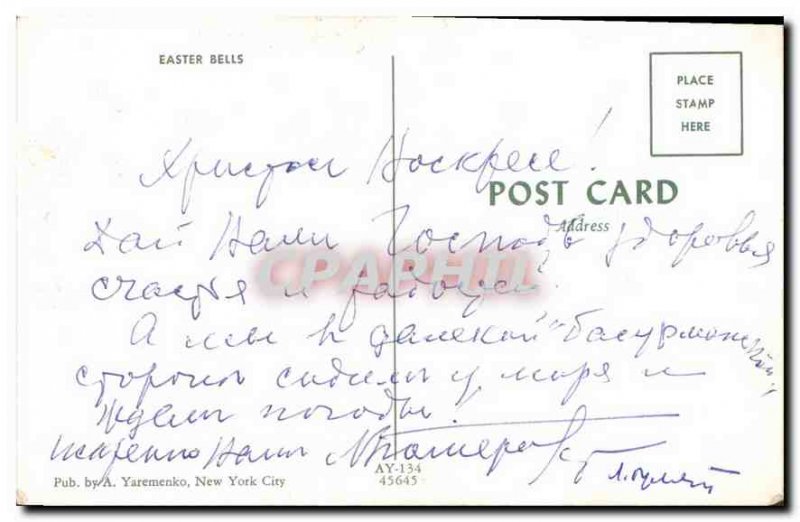 EASTER BELLS
PLACE
STAMP
HERE
Христос Воскресе!
POST CARD
Address
Дай Вам Господь здоровья
счастья и радостей!
А мы в далекой "басурманской"
стороне сидим у моря и
ждем погоды!
Искренно Ваш
AY-134
45645
Pub. by A. Yaremenko, New York City
CPAPHIL